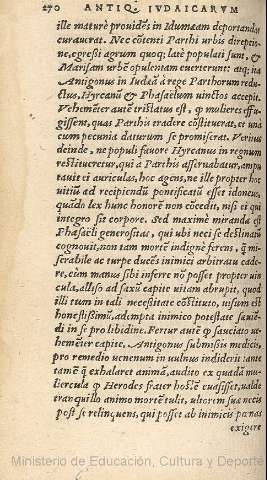 270 ANTIQ. IVDAICARVM
ille maturè prouidēs in Idumæam deportanda
curauerat. Nec cōtenti Parthi vrbis direptio-
ne, egreßi agrum quoq; latè populati sunt, &
Marisam vrbē opulentam euerterunt: atq; ita
Antigonus in Iudæā à rege Parthorum redu-
ctus, Hyrcanū & Phasaëlum uinctos accepit.
Vehemēter autē tristatus est, ꝙ mulieres effu-
gissent, quas Parthis tradere cōstituerat, et unà
cum pecunia daturum se promiserat. Veritus
deinde, ne populi fauore Hyrcanus in regnum
restitueretur, qui à Parthis asseruabatur, ampu
tauit ei auriculas, hoc agens, ne ille propter hoc
uitiū ad recipiendū pontificatū esset idoneus,
quādo lex hunc honorē non cōcedit, nisi ei qui
integro sit corpore. Sed maximè miranda est
Phasaëli generositas, qui ubi neci se destinatū
cognouit, non tam mortē indignè ferens, ꝙ mi-
serabile ac turpe ducēs inimici arbitratu cade-
re, cùm manus sibi inferre nō posset propter uin
cula, alliso ad saxū capite uitam abrupit, quod
illi tum in tali necessitate cōstituto, uisum est
honestißimū, adempta inimico potestate sæuiē
di in se pro libidine. Fertur autē ꝙ sauciato ue-
hementer capite, Antigonus submißis medicis,
pro remedio uenenum in uulnus indiderit: ante
tamē ꝙ exhalaret animā, audito ex quadā mu-
liercula ꝙ Herodes frater hostē euasisset, ualde
tranquillo animo mortē tulit, ultorem suæ necis
post se relinquens, qui posset ab inimicis pœnas
exigere
Ministerio de Educación, Cultura y Deporte